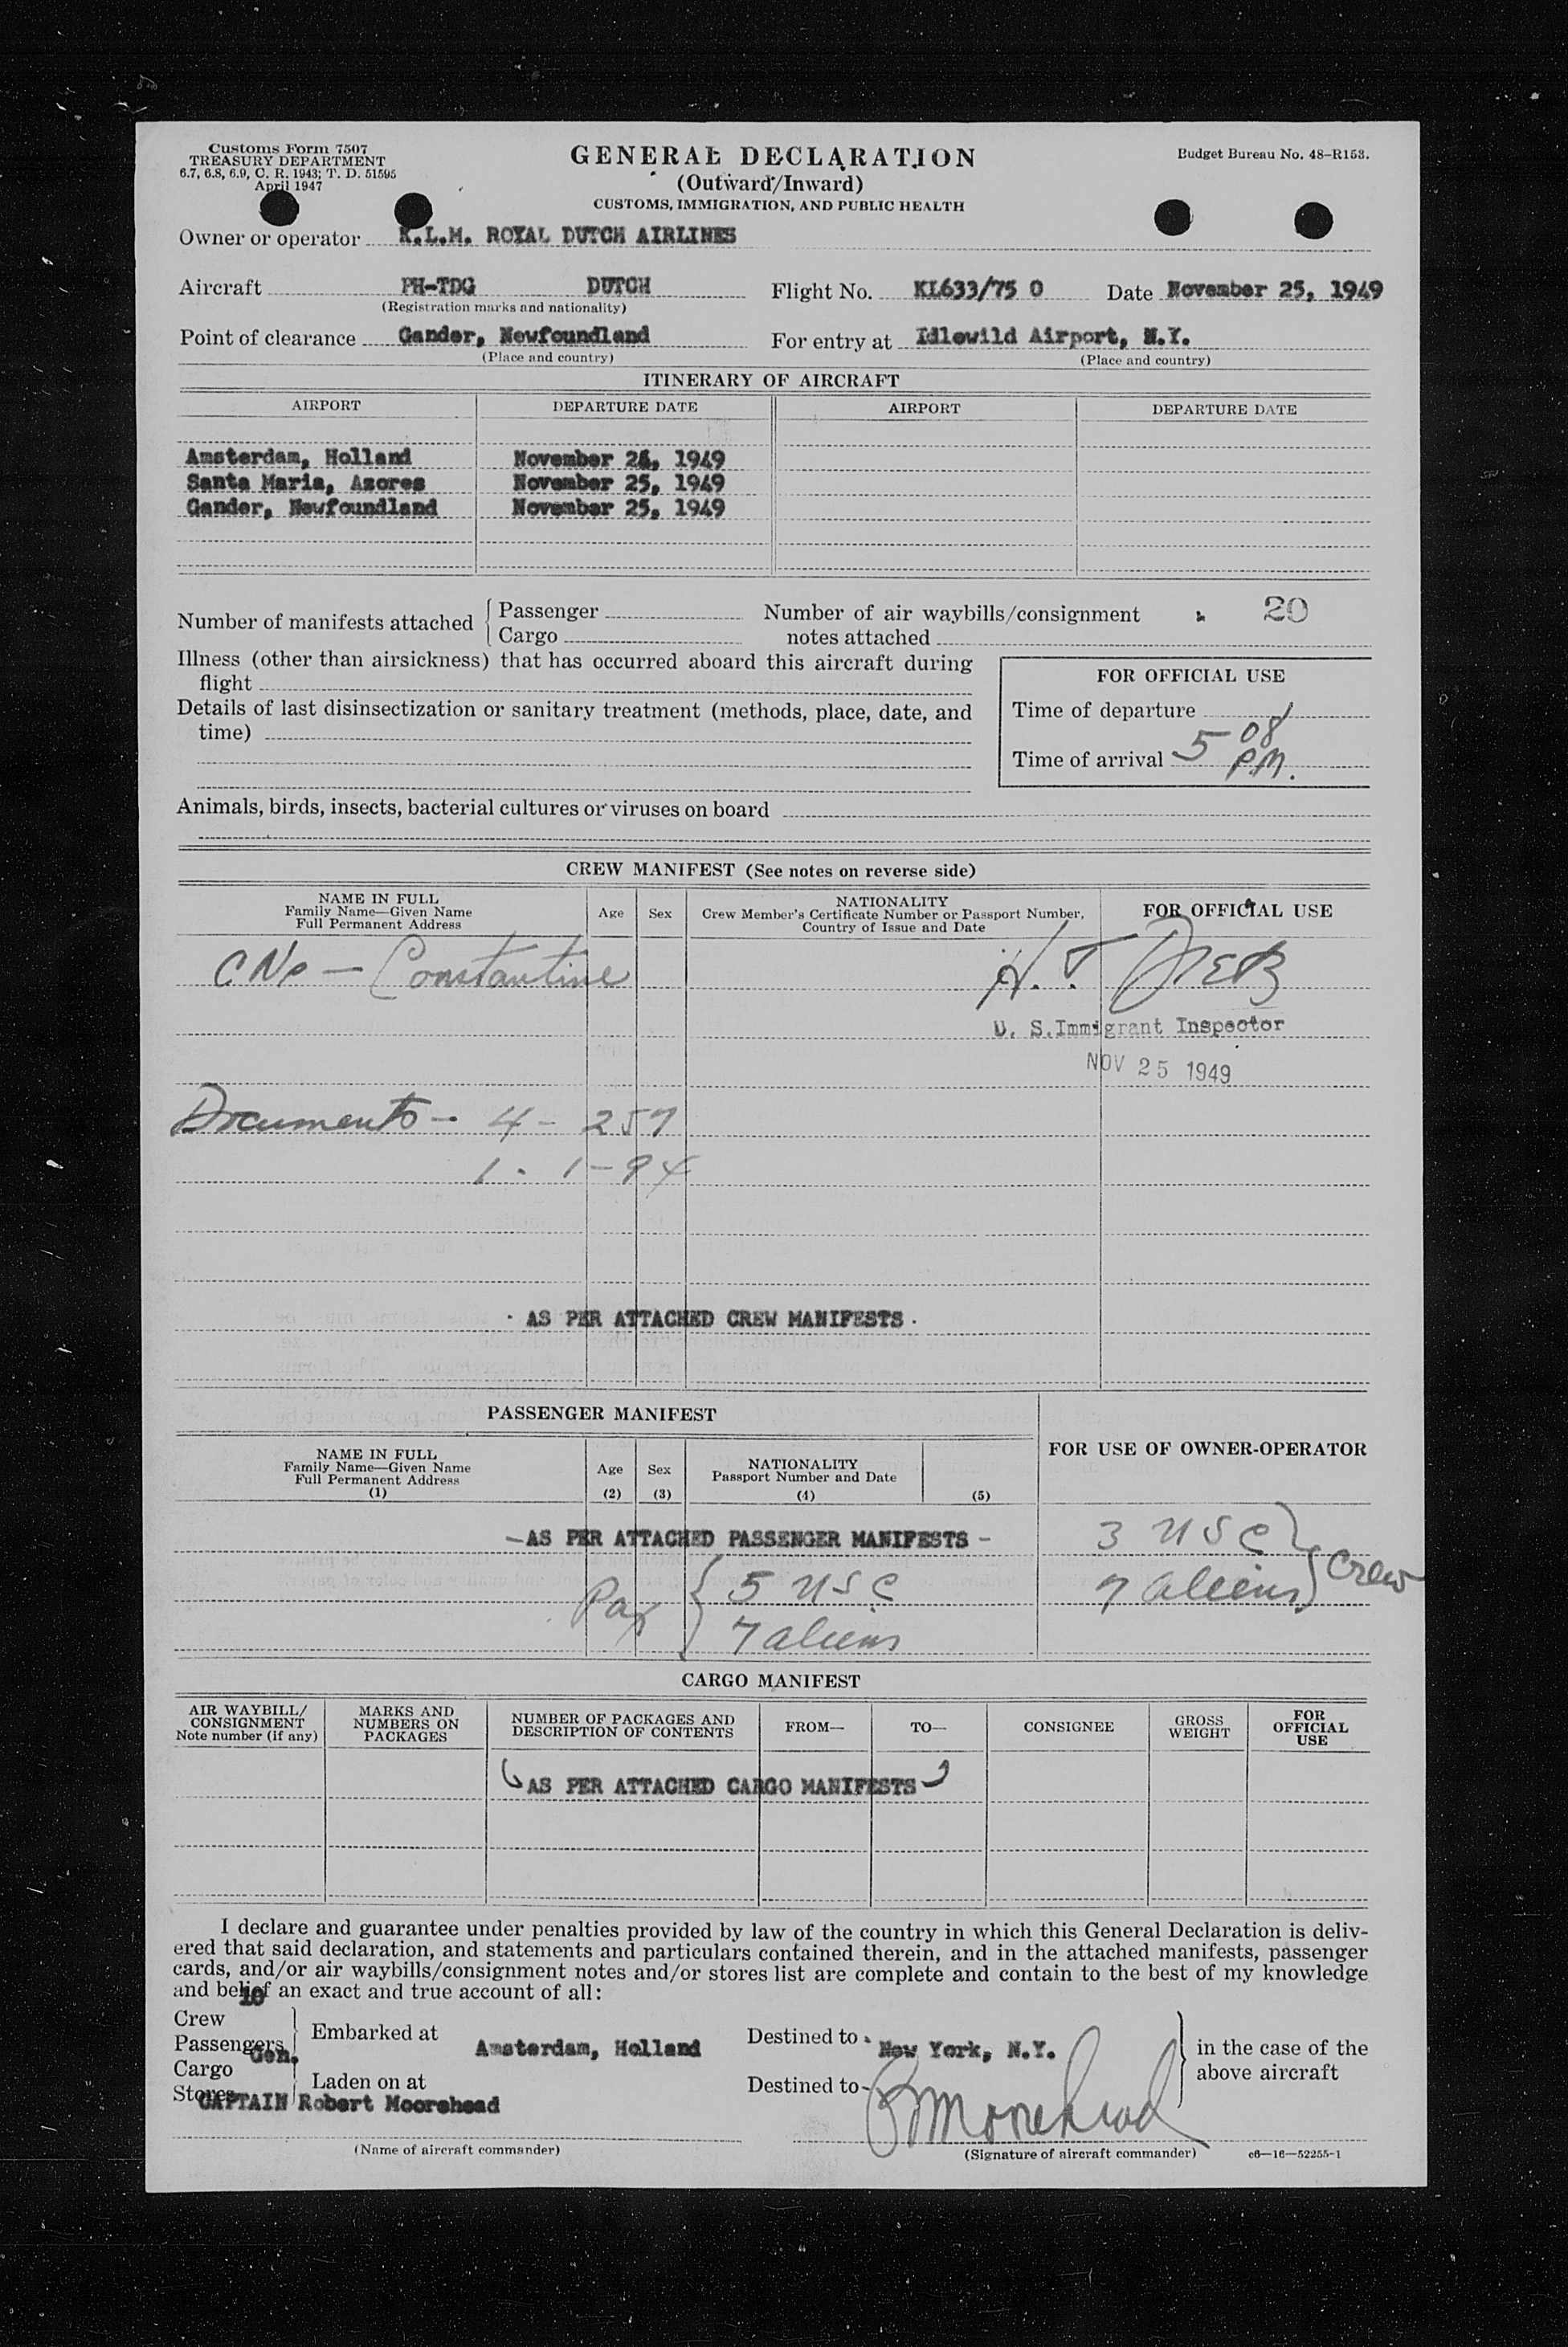 Customs Form 7507
TREASURY DEPARTMENT
6.7, 6.8, 6.9, C. R. 1943; T. D. 51595
April 1947
GENERAL DECLARATION
(Outward/Inward)
CUSTOMS, IMMIGRATION, AND PUBLIC HEALTH
Budget Bureau No. 48-R153.
Owner or operator K.L.M. ROYAL DUTCH AIRLINES
Aircraft PH-TDG DUTCH Flight No. KL633/75 0 Date November 25, 1949
(Registration marks and nationality)
Point of clearance Gander, Newfoundland For entry at Idlewild Airport, N.Y.
(Place and country) (Place and country)
ITINERARY OF AIRCRAFT
AIRPORT DEPARTURE DATE AIRPORT DEPARTURE DATE
Amsterdam, Holland November 24, 1949
Santa Maria, Azores November 25, 1949
Gander, Newfoundland November 25, 1949
Number of manifests attached { Passenger
Cargo
Number of air waybills/consignment 20
notes attached
Illness (other than airsickness) that has occurred aboard this aircraft during
flight
Details of last disinsectization or sanitary treatment (methods, place, date, and
time)
FOR OFFICIAL USE
Time of departure
Time of arrival 5 08 P.M.
Animals, birds, insects, bacterial cultures or viruses on board
CREW MANIFEST (See notes on reverse side)
NAME IN FULL
Family Name—Given Name
Full Permanent Address
Age Sex
NATIONALITY
Crew Member's Certificate Number or Passport Number,
Country of Issue and Date
FOR OFFICIAL USE
— Constantine
H. J.
U. S. Immigrant Inspector
NOV 25 1949
Documents - 4 - 257
1 - 1-94
AS PER ATTACHED CREW MANIFESTS
PASSENGER MANIFEST
NAME IN FULL
Family Name—Given Name
Full Permanent Address
(1)
Age
(2)
Sex
(3)
NATIONALITY
Passport Number and Date
(4) (5)
FOR USE OF OWNER-OPERATOR
-AS PER ATTACHED PASSENGER MANIFESTS -
3 USC } Crew
7 aliens
Pax { 5 USC
7 aliens
CARGO MANIFEST
AIR WAYBILL/
CONSIGNMENT
Note number (if any)
MARKS AND
NUMBERS ON
PACKAGES
NUMBER OF PACKAGES AND
DESCRIPTION OF CONTENTS
FROM—
TO—
CONSIGNEE
GROSS
WEIGHT
FOR
OFFICIAL
USE
AS PER ATTACHED CARGO MANIFESTS
I declare and guarantee under penalties provided by law of the country in which this General Declaration is deliv-
ered that said declaration, and statements and particulars contained therein, and in the attached manifests, passenger
cards, and/or air waybills/consignment notes and/or stores list are complete and contain to the best of my knowledge
and belief an exact and true account of all:
10
Crew
Passengers
Gen.
Cargo
Stores
Embarked at Amsterdam, Holland
Laden on at
Destined to New York, N.Y.
Destined to
in the case of the
above aircraft
CAPTAIN Robert Moorehead
Moorehead
(Name of aircraft commander)
(Signature of aircraft commander)
c6—16—52255-1